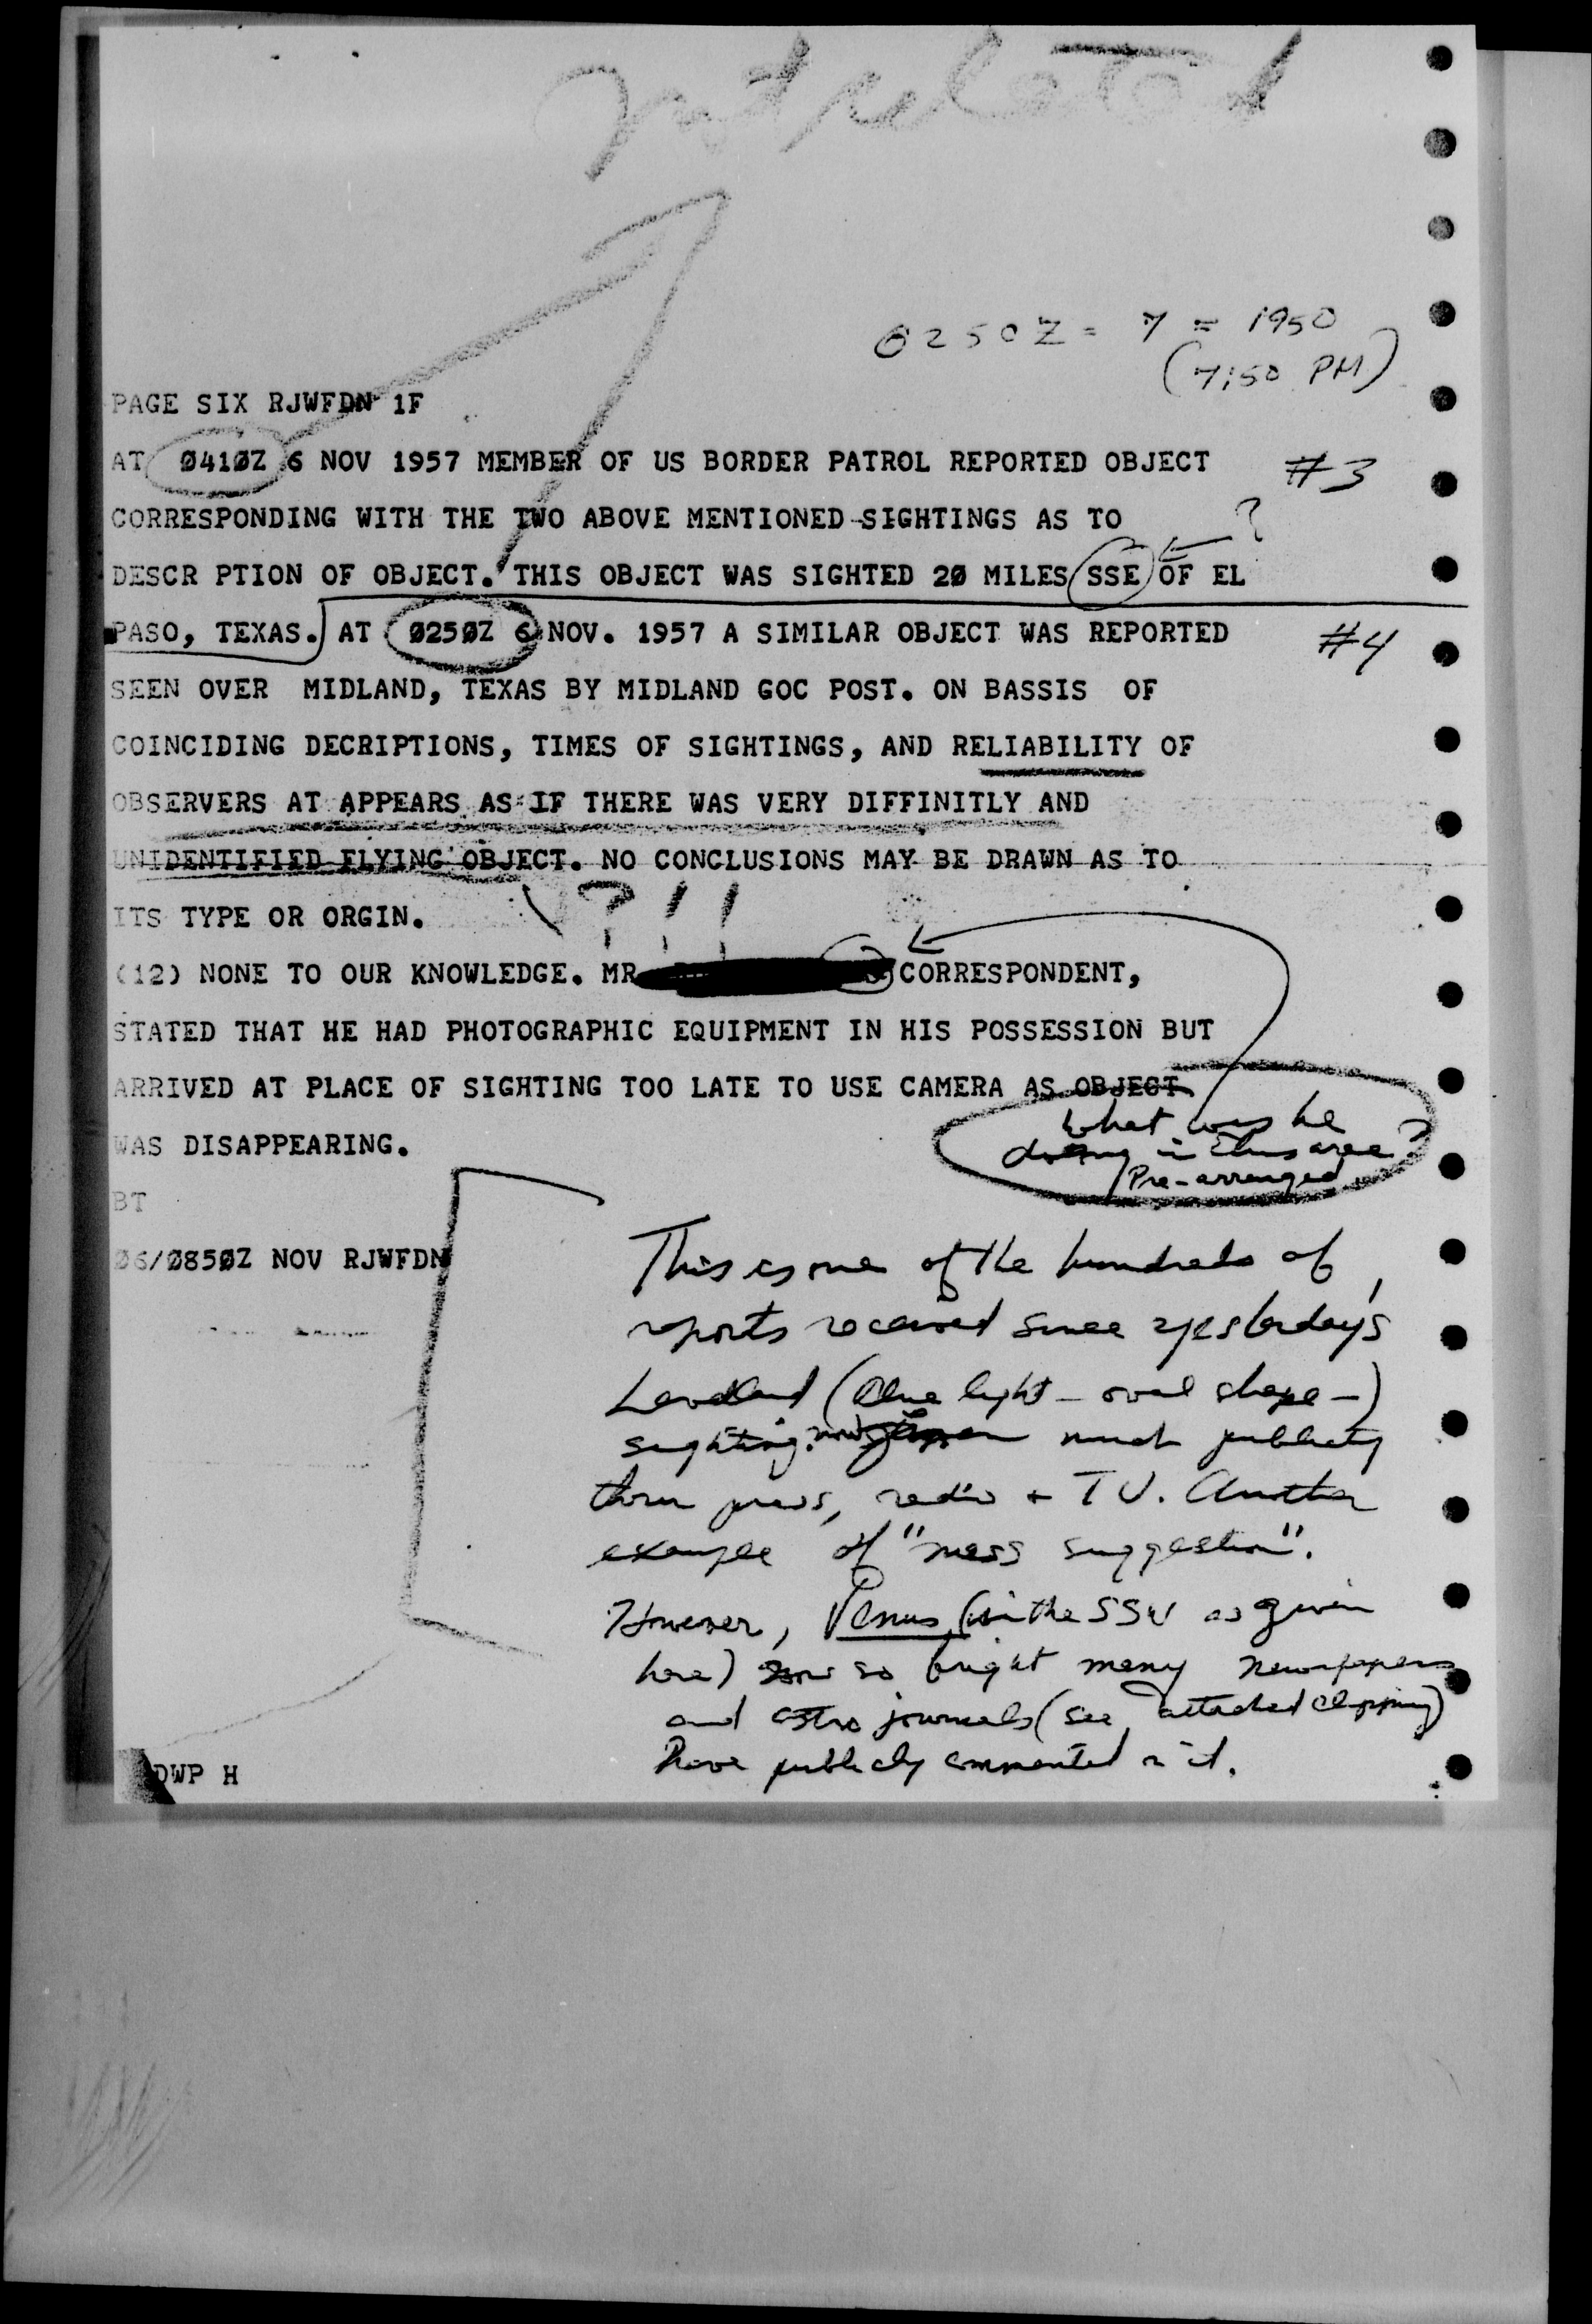 not related
0250Z - 7 = 1950
(7:50 PM)
PAGE SIX RJWFDN 1F
AT 0410Z 6 NOV 1957 MEMBER OF US BORDER PATROL REPORTED OBJECT #3
CORRESPONDING WITH THE TWO ABOVE MENTIONED SIGHTINGS AS TO ?
DESCR PTION OF OBJECT. THIS OBJECT WAS SIGHTED 20 MILES SSE OF EL
PASO, TEXAS. AT 0250Z 6 NOV. 1957 A SIMILAR OBJECT WAS REPORTED #4
SEEN OVER MIDLAND, TEXAS BY MIDLAND GOC POST. ON BASSIS OF
COINCIDING DECRIPTIONS, TIMES OF SIGHTINGS, AND RELIABILITY OF
OBSERVERS AT APPEARS AS IF THERE WAS VERY DIFFINITLY AND
UNIDENTIFIED FLYING OBJECT. NO CONCLUSIONS MAY BE DRAWN AS TO
ITS TYPE OR ORGIN. ? ! !
(12) NONE TO OUR KNOWLEDGE. MR CORRESPONDENT,
STATED THAT HE HAD PHOTOGRAPHIC EQUIPMENT IN HIS POSSESSION BUT
ARRIVED AT PLACE OF SIGHTING TOO LATE TO USE CAMERA AS OBJECT
WAS DISAPPEARING.
What was he
doing in this area?
Pre-arranged
BT
06/0850Z NOV RJWFDN
This is one of the hundreds of
reports received since yesterday's
Levelland (blue light - oval shape -)
sighting. much publicity
thru press, radio + TV. Another
example of "mass suggestion".
However, Venus (in the SSW as given
here) so bright many newspapers
and astro journals (see attached clipping)
have publicly commented on it.
DWP H